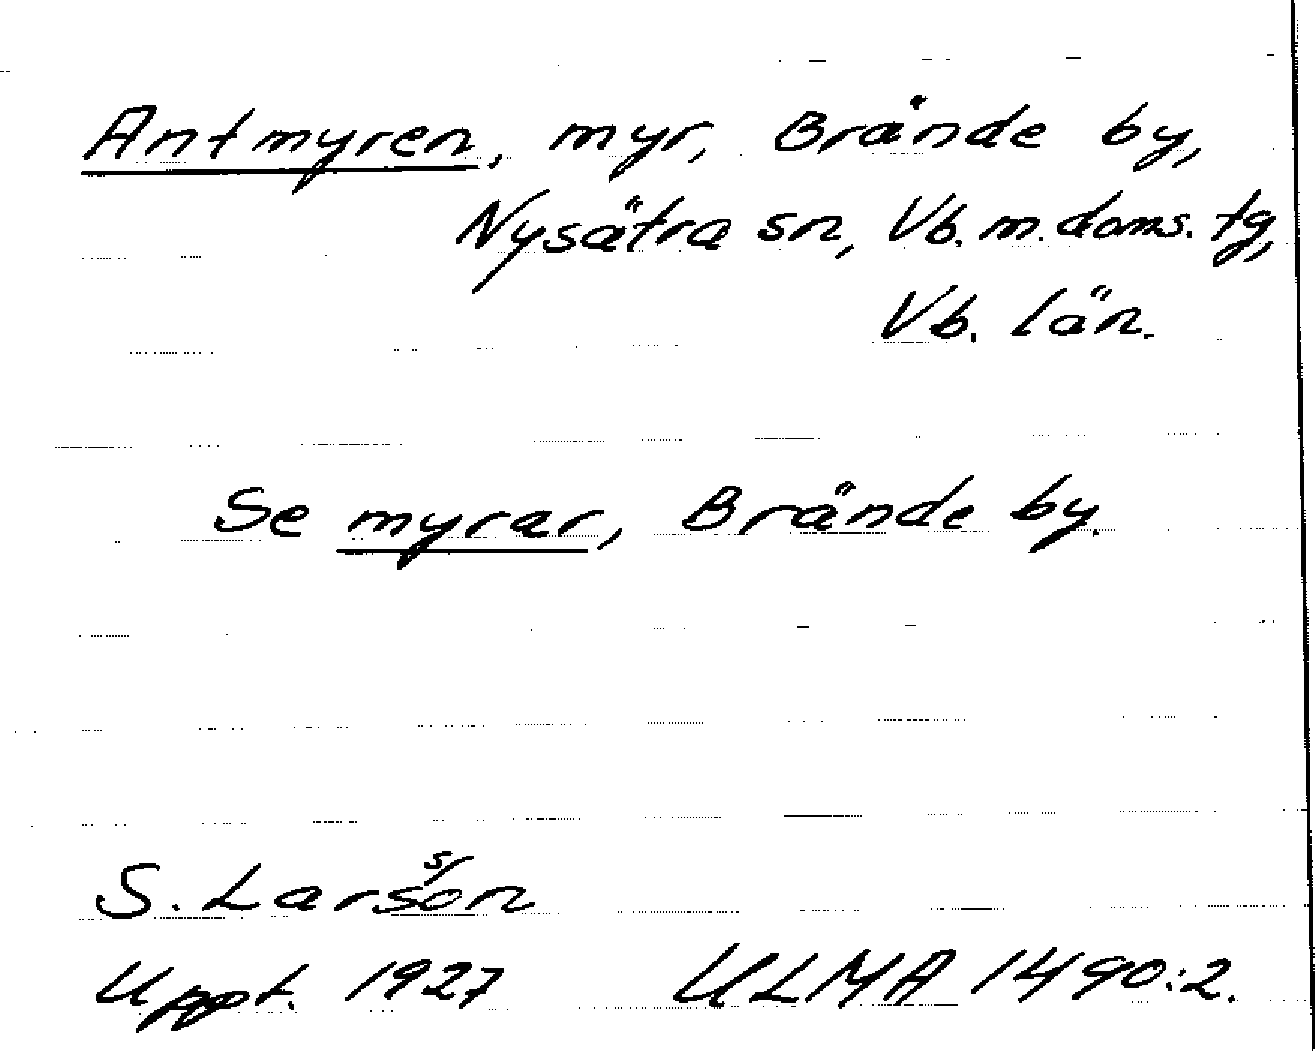 Antmyren, myr, Brände by,
Nysätra sn, Vb. m. doms. tg,
Vb. län.
Se myrar, Brände by.
S. Larsson
Uppt. 1927 ULMA 1490:2.